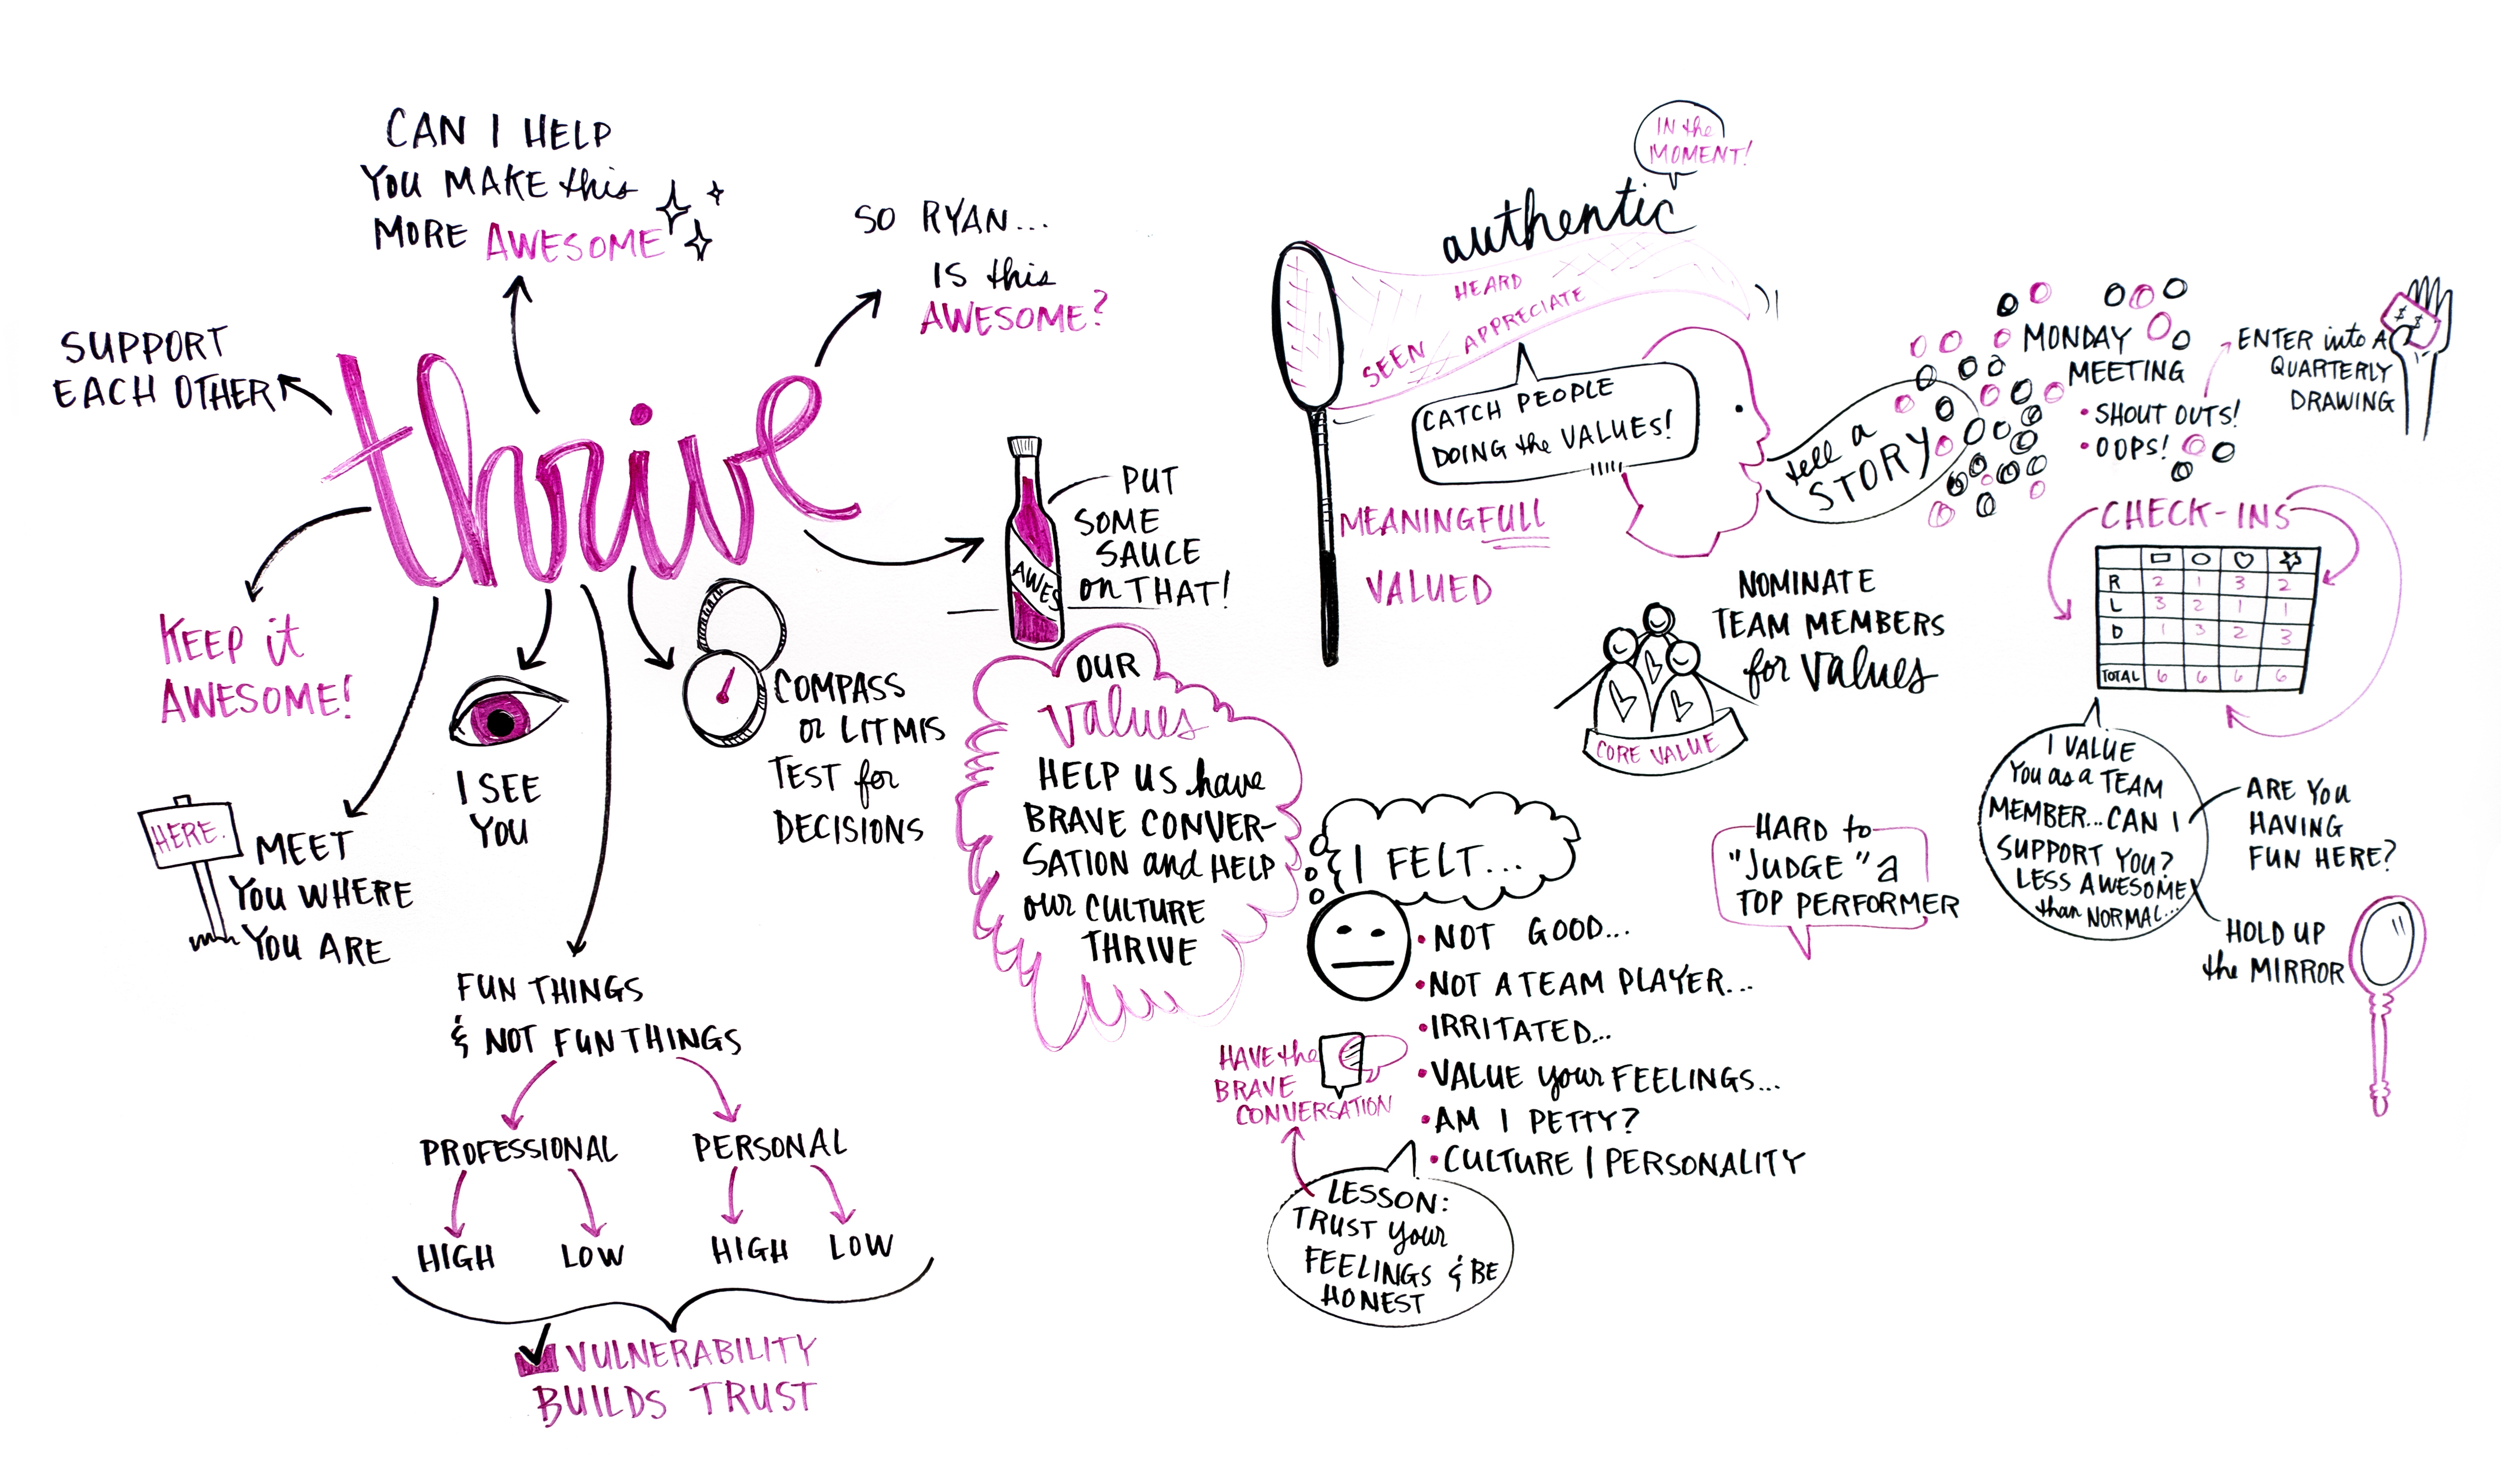 CAN I HELP
YOU MAKE this
MORE AWESOME
SO RYAN...
IS this
AWESOME?
SUPPORT
EACH OTHER
thrive
KEEP it
AWESOME!
HERE.
MEET
YOU WHERE
YOU ARE
I SEE
YOU
COMPASS
or LITMIS
TEST for
DECISIONS
AWES
PUT
SOME
SAUCE
on THAT!
FUN THINGS
& NOT FUN THINGS
PROFESSIONAL
PERSONAL
HIGH
LOW
HIGH
LOW
VULNERABILITY
BUILDS TRUST
OUR
values
HELP US have
BRAVE CONVER-
SATION and HELP
our CULTURE
THRIVE
IN the
MOMENT!
authentic
HEARD
SEEN APPRECIATE
CATCH PEOPLE
DOING the VALUES!
MEANINGFULL
VALUED
tell a
STORY
MONDAY
MEETING
• SHOUT OUTS!
• OOPS!
ENTER into A
QUARTERLY
DRAWING
$ $
NOMINATE
TEAM MEMBERS
for values
CORE VALUE
CHECK-INS
R 2 1 3 2
L 3 2 1 1
D 1 3 2 3
TOTAL 6 6 6 6
I VALUE
YOU as a TEAM
MEMBER... CAN I
SUPPORT YOU?
LESS AWESOME
than NORMAL...
ARE YOU
HAVING
FUN HERE?
HOLD UP
the MIRROR
I FELT...
• NOT GOOD...
• NOT A TEAM PLAYER...
• IRRITATED...
• VALUE your FEELINGS...
• AM I PETTY?
• CULTURE | PERSONALITY
HARD to
"JUDGE" a
TOP PERFORMER
HAVE the
BRAVE
CONVERSATION
LESSON:
TRUST your
FEELINGS & BE
HONEST